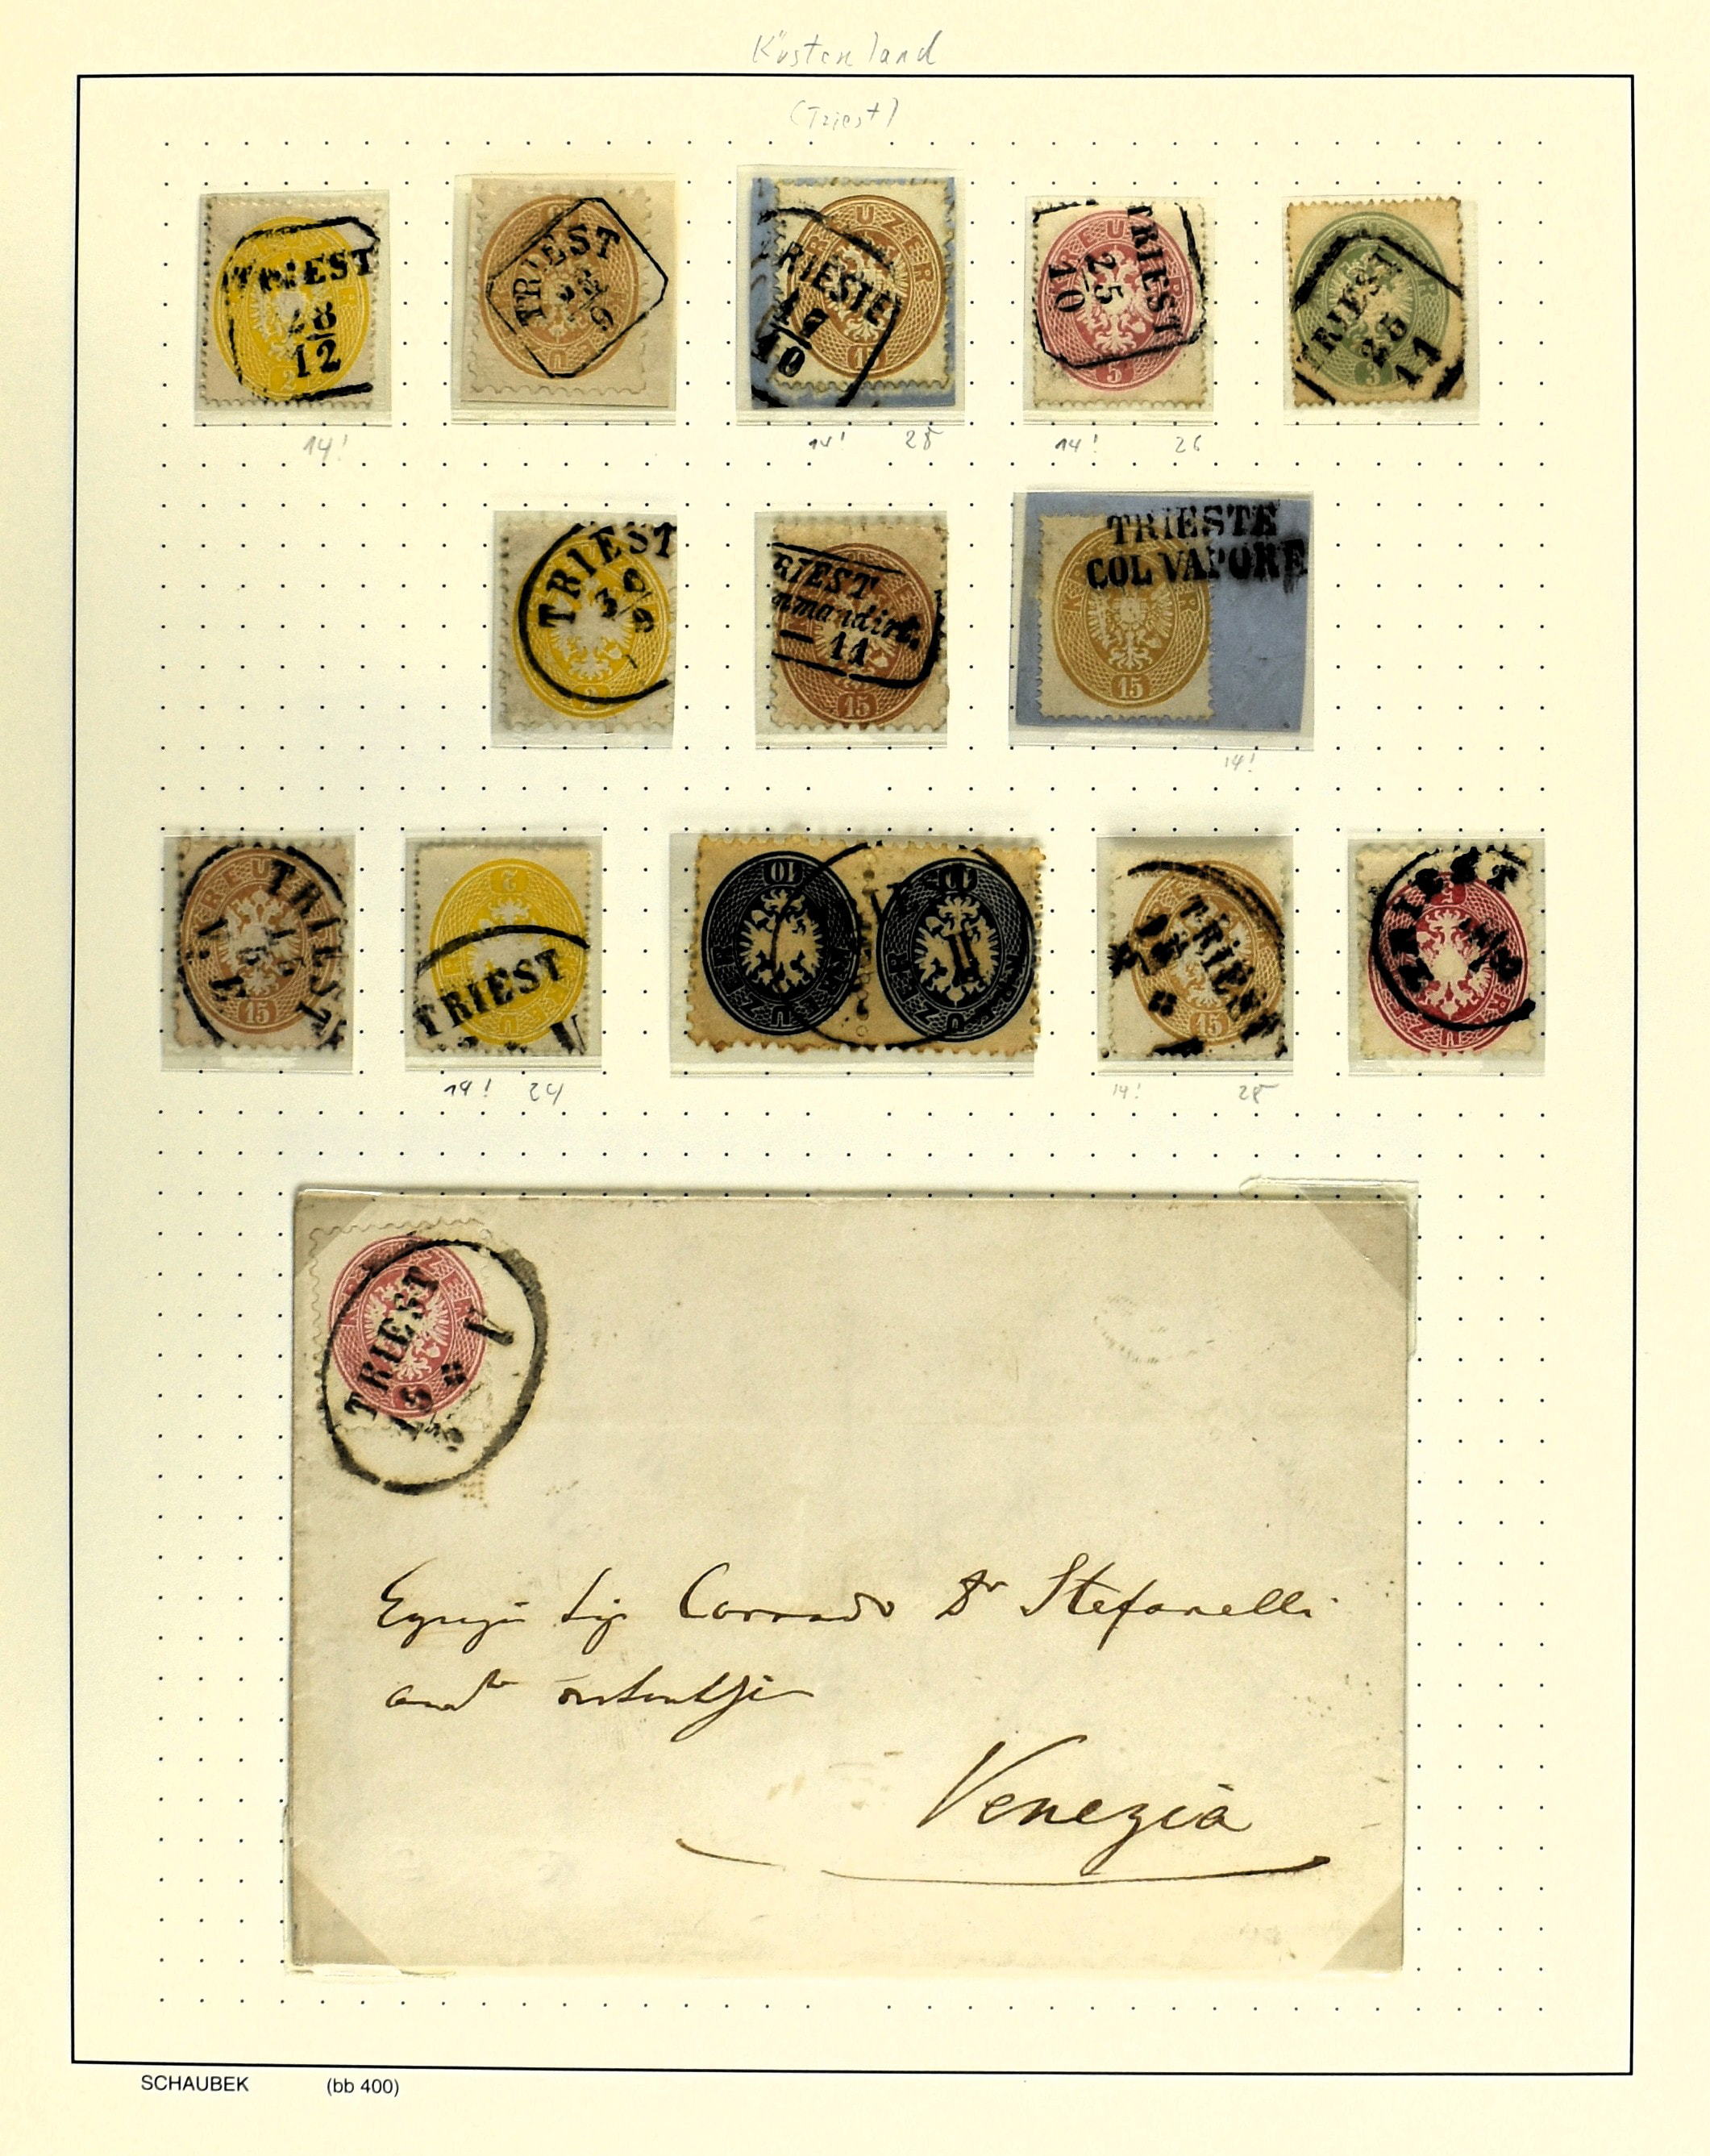 Küstenland
(Triest)
TRIEST
28
12
2
TRIEST
TRIESTE
KREUZER
15
TRIEST
25
10
5
TRIEST
25
11
3
14!
14! 25
14! 26
TRIEST
30/9
2
RIEST
mmandirt.
11
15
TRIESTE
COL VAPORE
KREUZER
15
14!
TRIEST
15
2
TRIEST
V
10
10
II
TRIEST
15
TRIEST
14! 24
14! 25
TRIEST
V
Sig Corrado Dr Stefanelli
Venezia
SCHAUBEK (bb 400)